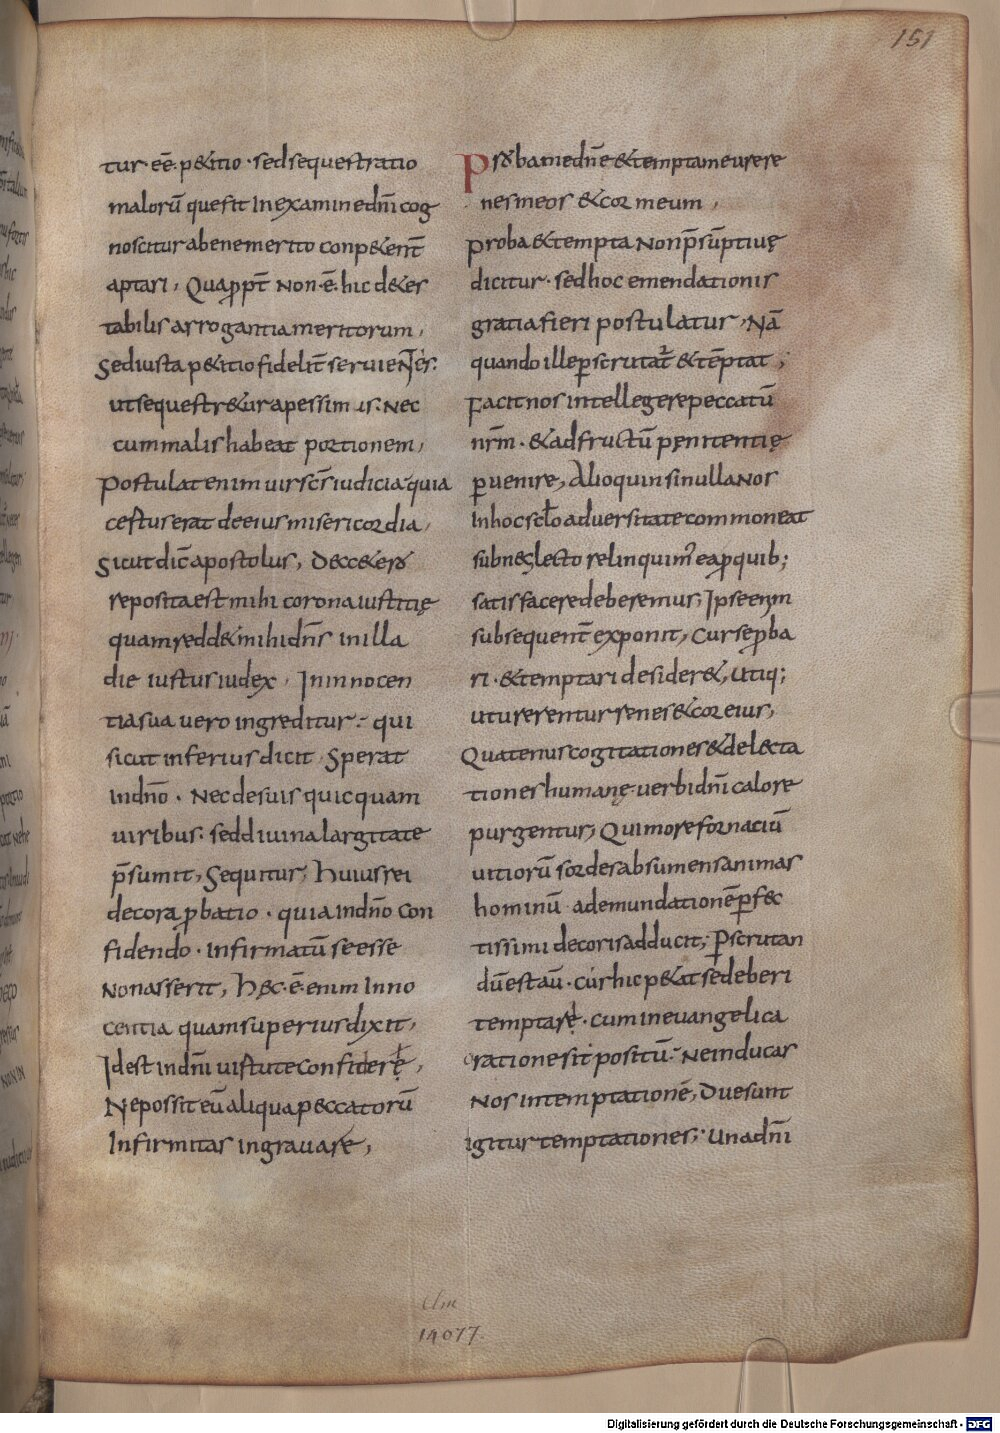 151
tur·eē·p&itio·sedsequestratio
malorū quefit Inexaminedn̄i cog
noscitur abenemerito conp&ent̄
aptari, Quapp̄t Non·ē·hic d&es
tabilis arrogantia meritorum,
Sediusta p&itio fidelit̄ seruieNtis:
utsequestr&ur apessimis: Nec
cum malis habeat portionem,
Postulat enim uir sc̄s iudicia quia
certus erat deeius misericordia,
Sicut dic̄ apostolus, Decc&ero
reposita est mihi corona iustitię
quam redd& mihi dn̄s inilla
die iustus iudex, Ininnocen
tia sua uero ingreditur: qui
sicut inferius dicit Sperat
Indn̄o. Nec desuis quicquam
uiribus: sed diuina largitate
p̄sumit, Sequitur, Huius rei
decora p̱batio. quia Indn̄o con
fidendo. Infirmatū se esse
Non asserit, Hęc·ē·enim Inno
centia quam superius dixit,
Id est indn̄i uirtute confiderę,
Ne possit eū aliqua peccatorū
Infirmitas ingrauare,
Proba me dn̄e &tempta me ure re
nes meos &cor meum,
Proba &tempta Non p̄sūptiuę
dicitur. sed hoc emendationis
gratia fieri postulatur, Nā
quando ille p̱scrutat̄ &tēptat;
Facit nos intellegere peccatū
nr̄m. &ad fructū pęnitentię
p̱uenire, Alioquin sinulla nos
In hoc sc̄lo aduersitate commoneat
sub neglecto relinquim' ea p̱ quib;
satisfacere deberemus, Ipse enim
subsequent̄ exponit, Cur se p̱ba
ri·&temptari desider&, utiq;
uturerentur renes &cor eius,
Quatenus cogitationes &delecta
tiones humanę uerbi dn̄i calore
purgentur, Qui more fornaciū
uitiorū sordes absumens animas
hominū ademundationē p̱fec
tissimi decoris adducit, P̱scrutan
dū est aū. cur hic p&at se deberi
temptarę. cum in euangelica
oratione sit positū: Ne inducas
Nos in temptationē, Due sunt
igitur temptationes: Una dn̄i
Clm
14077.
Digitalisierung gefördert durch die Deutsche Forschungsgemeinschaft - DFG